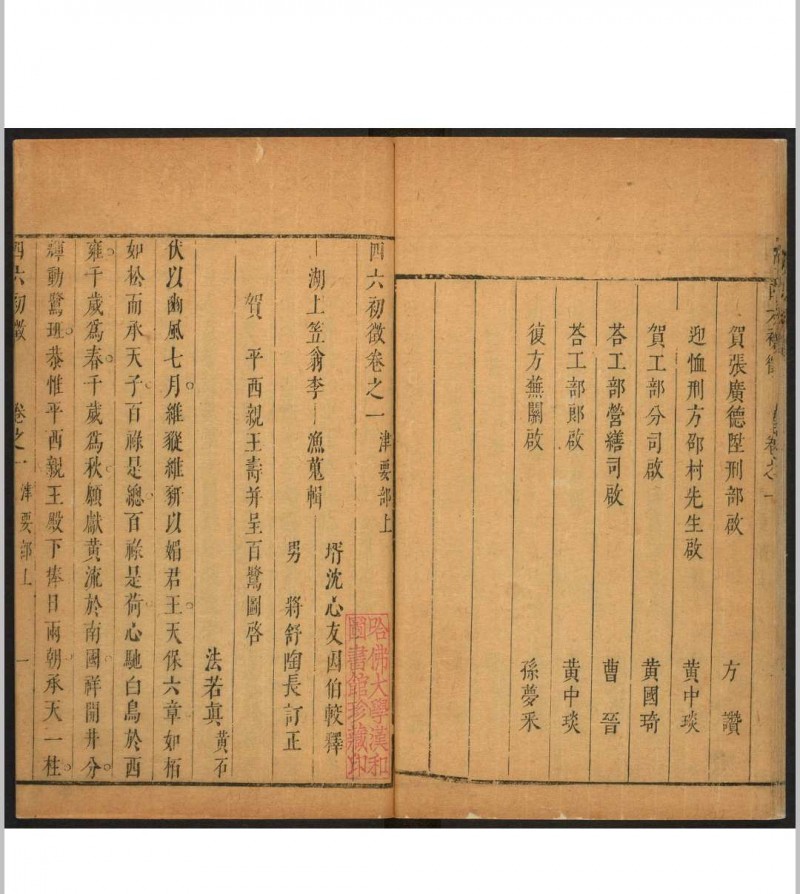 賀張廣德陞刑部啟 方讚
迎恤刑方邵村先生啟 黃中琰
賀工部分司啟 黃國琦
荅工部營繕司啟 曹晉
荅工部郎啟 黃中琰
復方蕪關啟 孫夢釆
四六初徵卷之一 津要部上
湖上笠翁李 漁蒐輯
壻沈心友因伯較釋
男 將舒陶長訂正
賀 平西親王壽并呈百鷺圖啓
法若真 黃石
伏以豳風七月維豵維豜以媚君王天保六章如栢
如松而承天子百祿是總百祿是荷心馳白鳥於西
雍千歲為春千歲為秋願獻黃流於南國祥開井分
輝動鷺班恭惟平西親王殿下捧日兩朝承天一柱
四六初徵 卷之一 津要部上 一
哈佛大學漢和
圖書館珍藏印